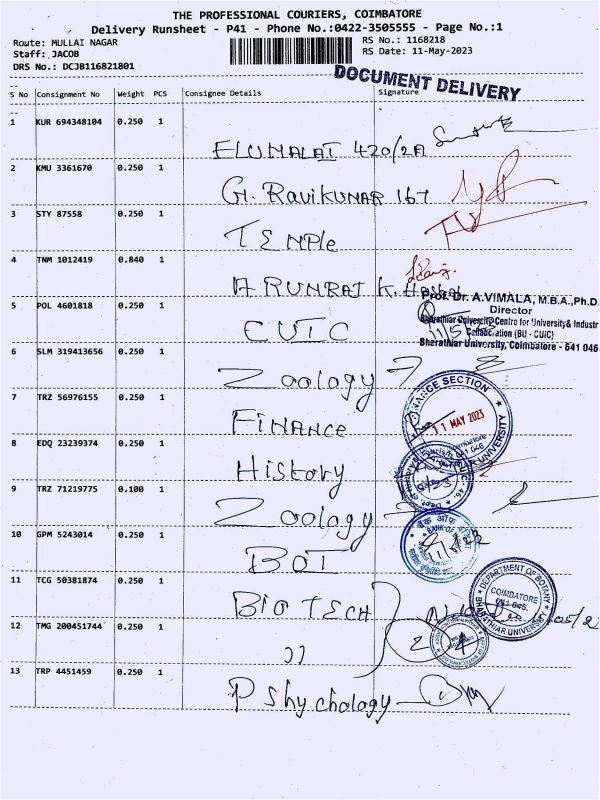 THE PROFESSIONAL COURIERS, COIMBATORE
Delivery Runsheet - P41 - Phone No.:0422-3505555 - Page No.:1
Route: MULLAI NAGAR
RS No.: 1168218
Staff: JACOB
RS Date: 11-May-2023
DRS No.: DCJB116821801
DOCUMENT DELIVERY
S No Consignment No Weight PCS Consignee Details Signature
1 KUR 694348104 0.250 1
ELUMALAI 420/2A
2 KMU 3361670 0.250 1
G. RAVIKUMAR 167
3 STY 87558 0.250 1
TEMPle
4 TNM 1012419 0.840 1
ARUNRAJ K.
Prof. Dr. A.VIMALA, M.B.A.,Ph.D.
Director
5 POL 4601818 0.250 1
CUIC
Bharathiar University Centre for University& Industr
Collaboration (BU - CUIC)
Bharathiar University, Coimbatore - 641 046
11/5/23
6 SLM 319413656 0.250 1
Zoology
7 TRZ 56976155 0.250 1
FINANCE
FINANCE SECTION
11 MAY 2023
UNIVERSITY
8 EDQ 23239374 0.250 1
History
9 TRZ 71219775 0.100 1
Zoology
10 GPM 5243014 0.250 1
BOI
बैंक ऑफ
BANK OF
11 TCG 50381874 0.250 1
BIO TECH
DEPARTMENT OF BOTANY
COIMBATORE
641 046.
BHARATHIAR UNIVERSITY
12 TMG 200451744 0.250 1
,,
13 TRP 4451459 0.250 1
Pshychology